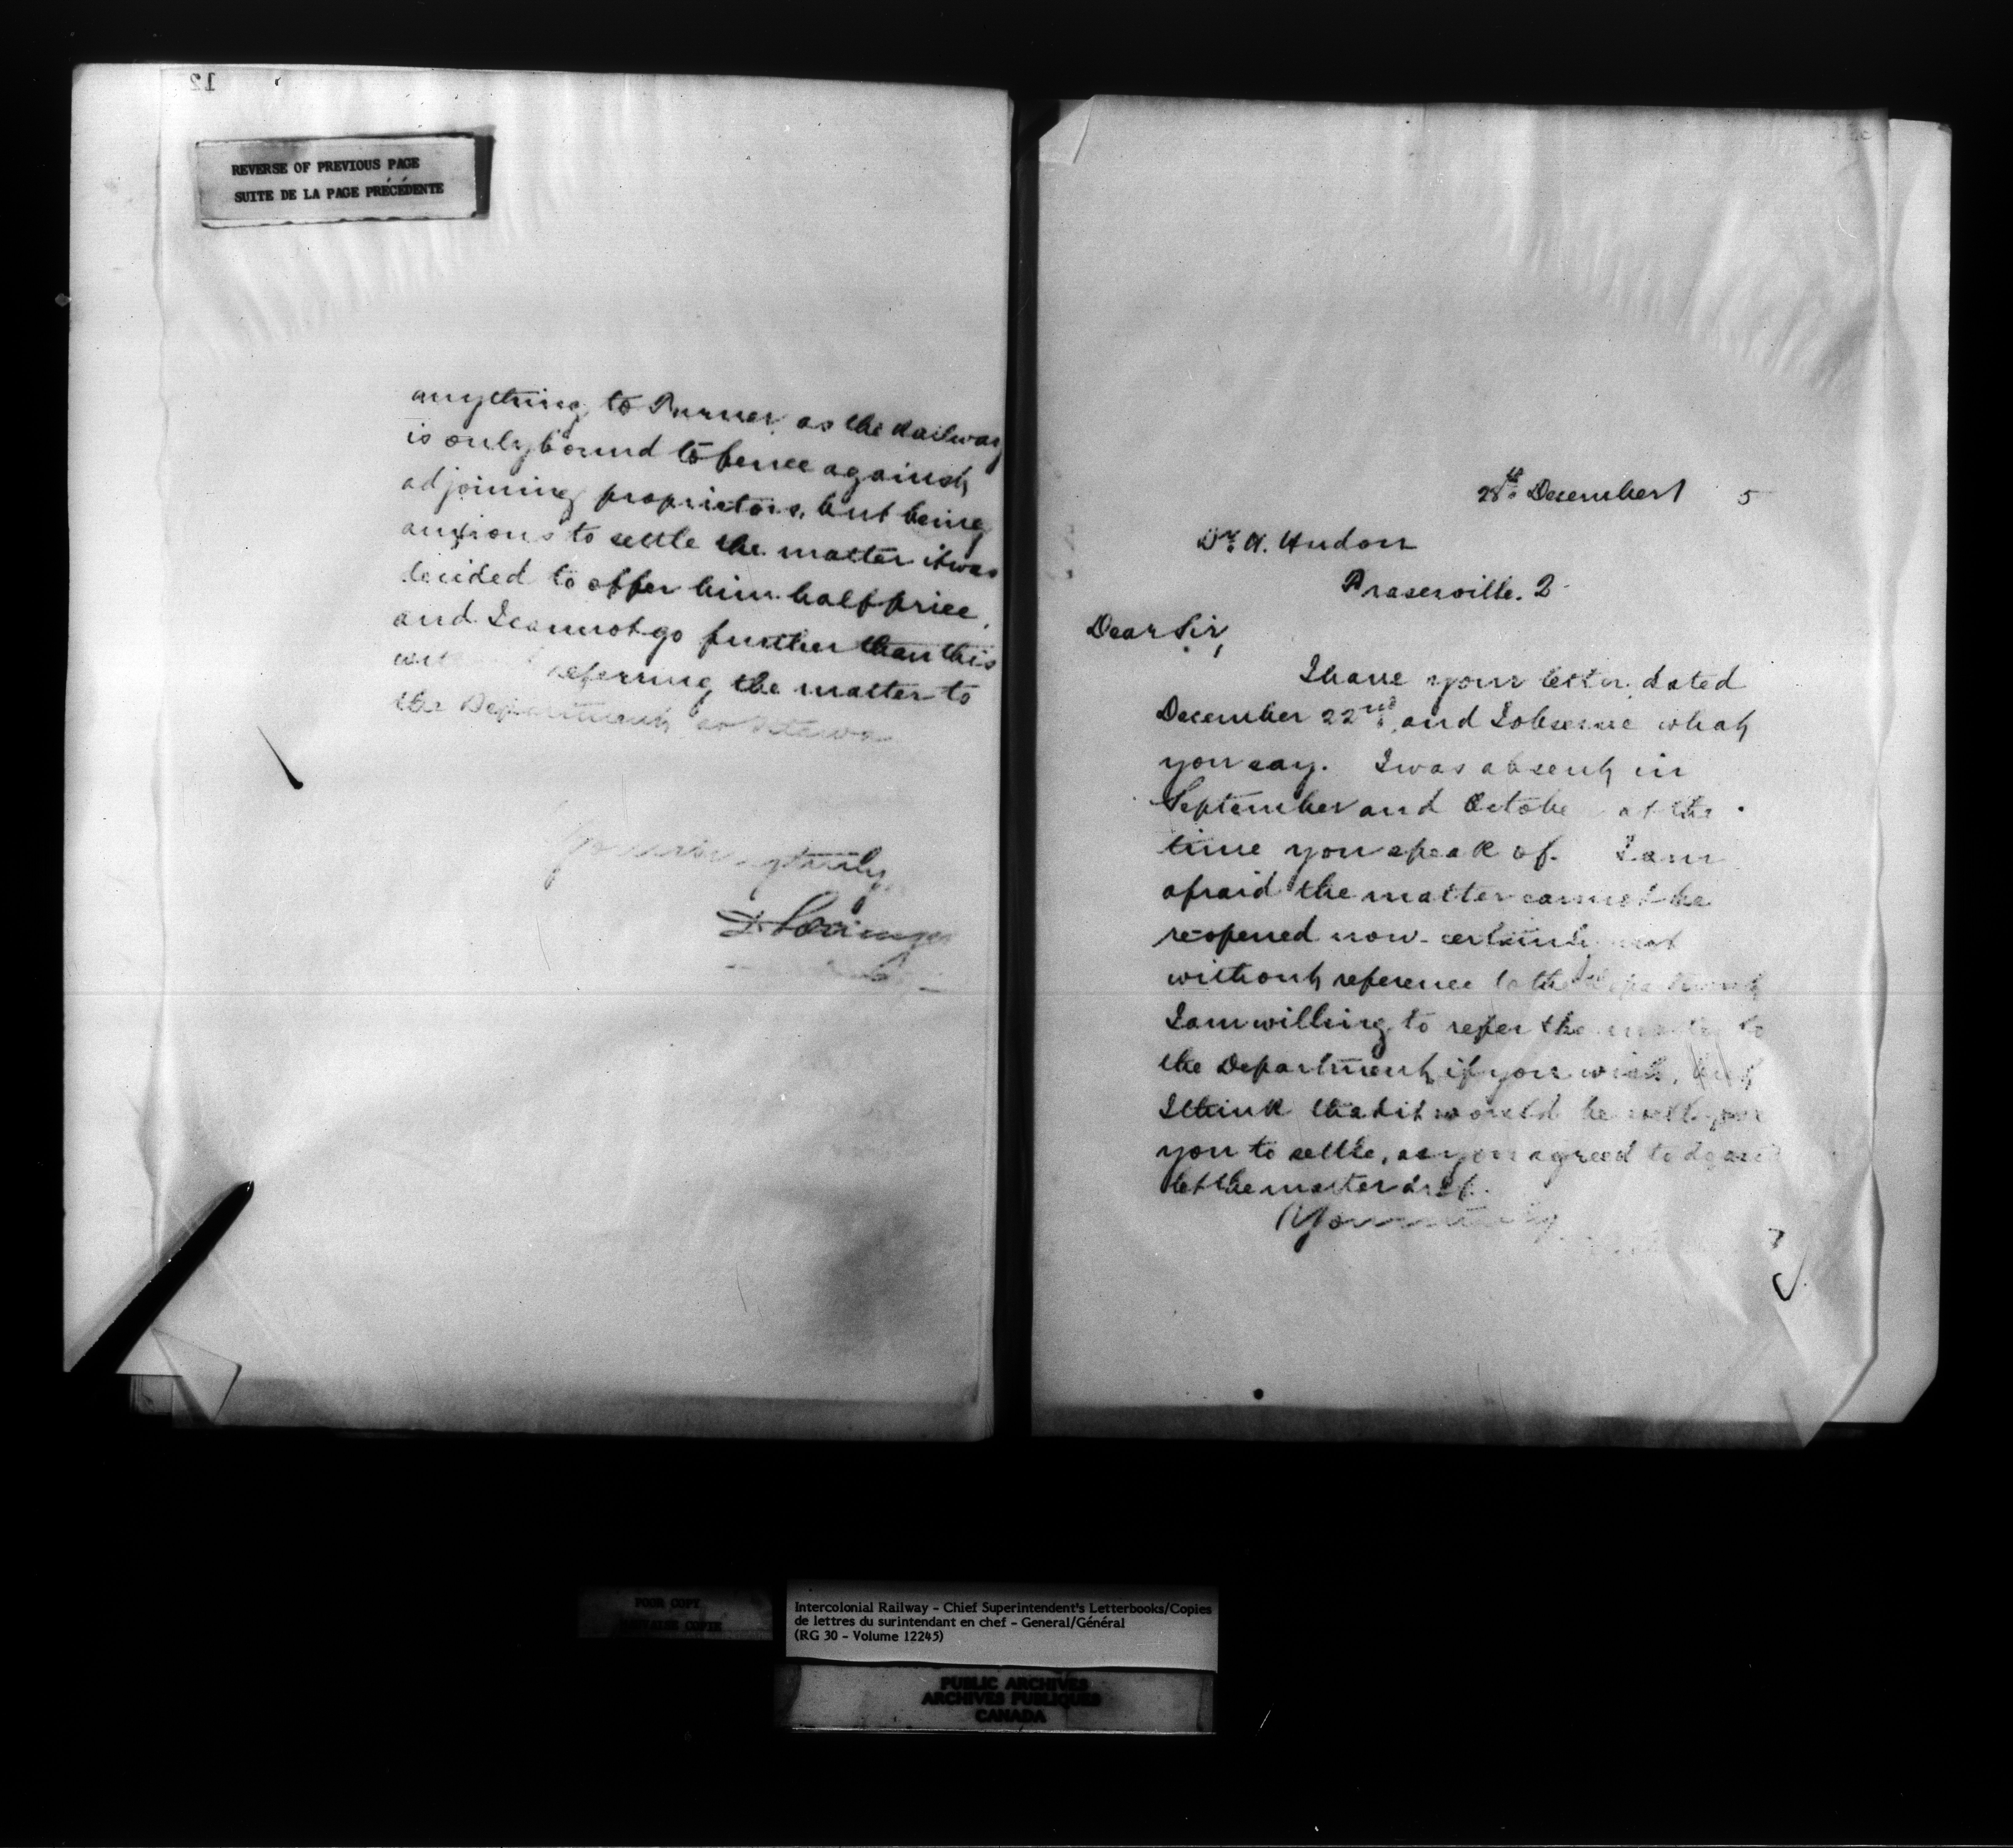 12
REVERSE OF PREVIOUS PAGE
SUITE DE LA PAGE PRÉCÉDENTE
anything to Turner, as the Railway
is only bound to fence against
adjoining proprietors, but being
anxious to settle the matter it was
decided to offer him half price,
and I cannot go further than this
referring the matter to
the Department at Ottawa
Yours truly
28th December 5
Dr. A. Hudon
Fraserville. 2
Dear Sir,
I have your letter dated
December 22nd, and I observe what
you say. I was absent in
September and October at the
time you speak of. I am
afraid the matter cannot be
re-opened now - certainly not
without reference to the Department
I am willing to refer the matter to
the Department if you wish, but
I think that it would be well for
you to settle, as you agreed to do and
let the matter drop.
Yours truly
POOR COPY
Intercolonial Railway - Chief Superintendent's Letterbooks/Copies
de lettres du surintendant en chef - General/Général
(RG 30 - Volume 12245)
PUBLIC ARCHIVES
ARCHIVES PUBLIQUES
CANADA